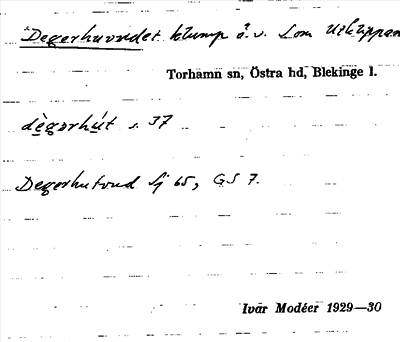 Degerhuvudet klump å.v. Lom Utklippan
Torhamn sn, Östra hd, Blekinge l.
dègərhút s. 37
Degerhutoud Sj 65, GS 7.
Ivar Modéer 1929—30